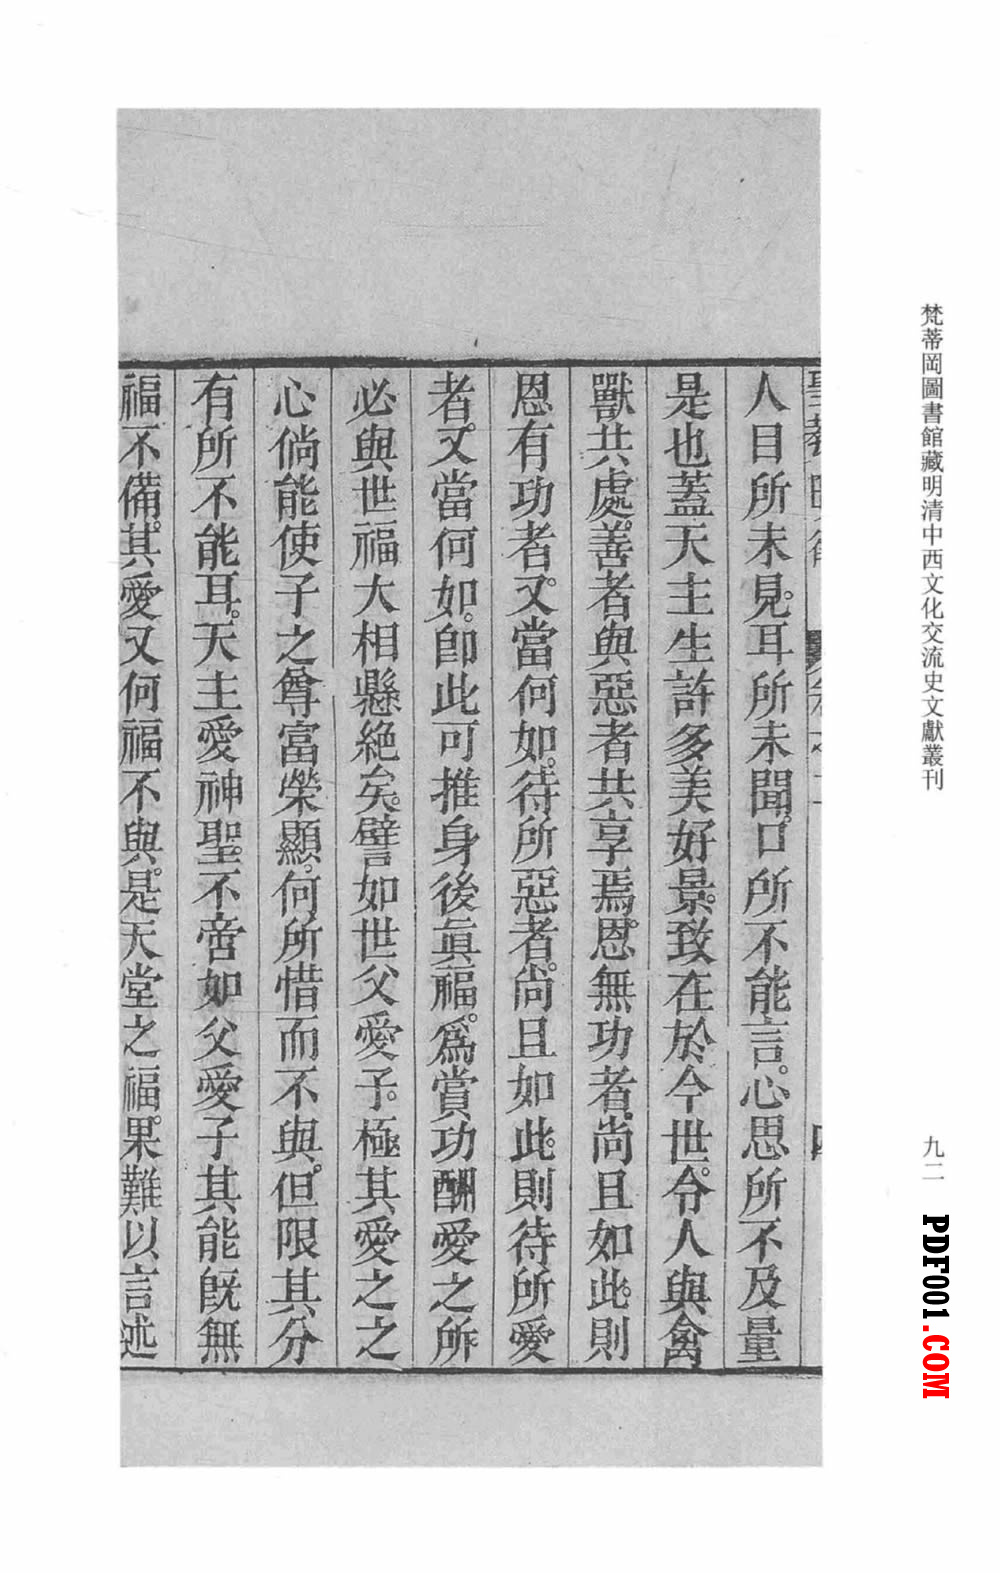 梵蒂岡圖書館藏明清中西文化交流史文獻叢刊
九二
PDF001.COM
人目所未見。耳所未聞。口所不能言。心思所不及量
是也蓋天主生許多美好景。致在於今世。令人與禽
獸共處。善者與惡者共享焉。恩無功者。尚且如此。則
恩有功者。又當何如。待所惡者。尚且如此。則待所愛
者。又當何如。卽此可推身後眞福。爲賞功酬愛之所
必與世福大相懸絶矣。譬如世父愛子。極其愛之之
心倘能使子之尊富榮顯。何所惜而不與。但限其分
有所不能耳。天主愛神聖。不啻如父愛子其能旣無
福不備。其愛又何福不與。是天堂之福。果難以言述